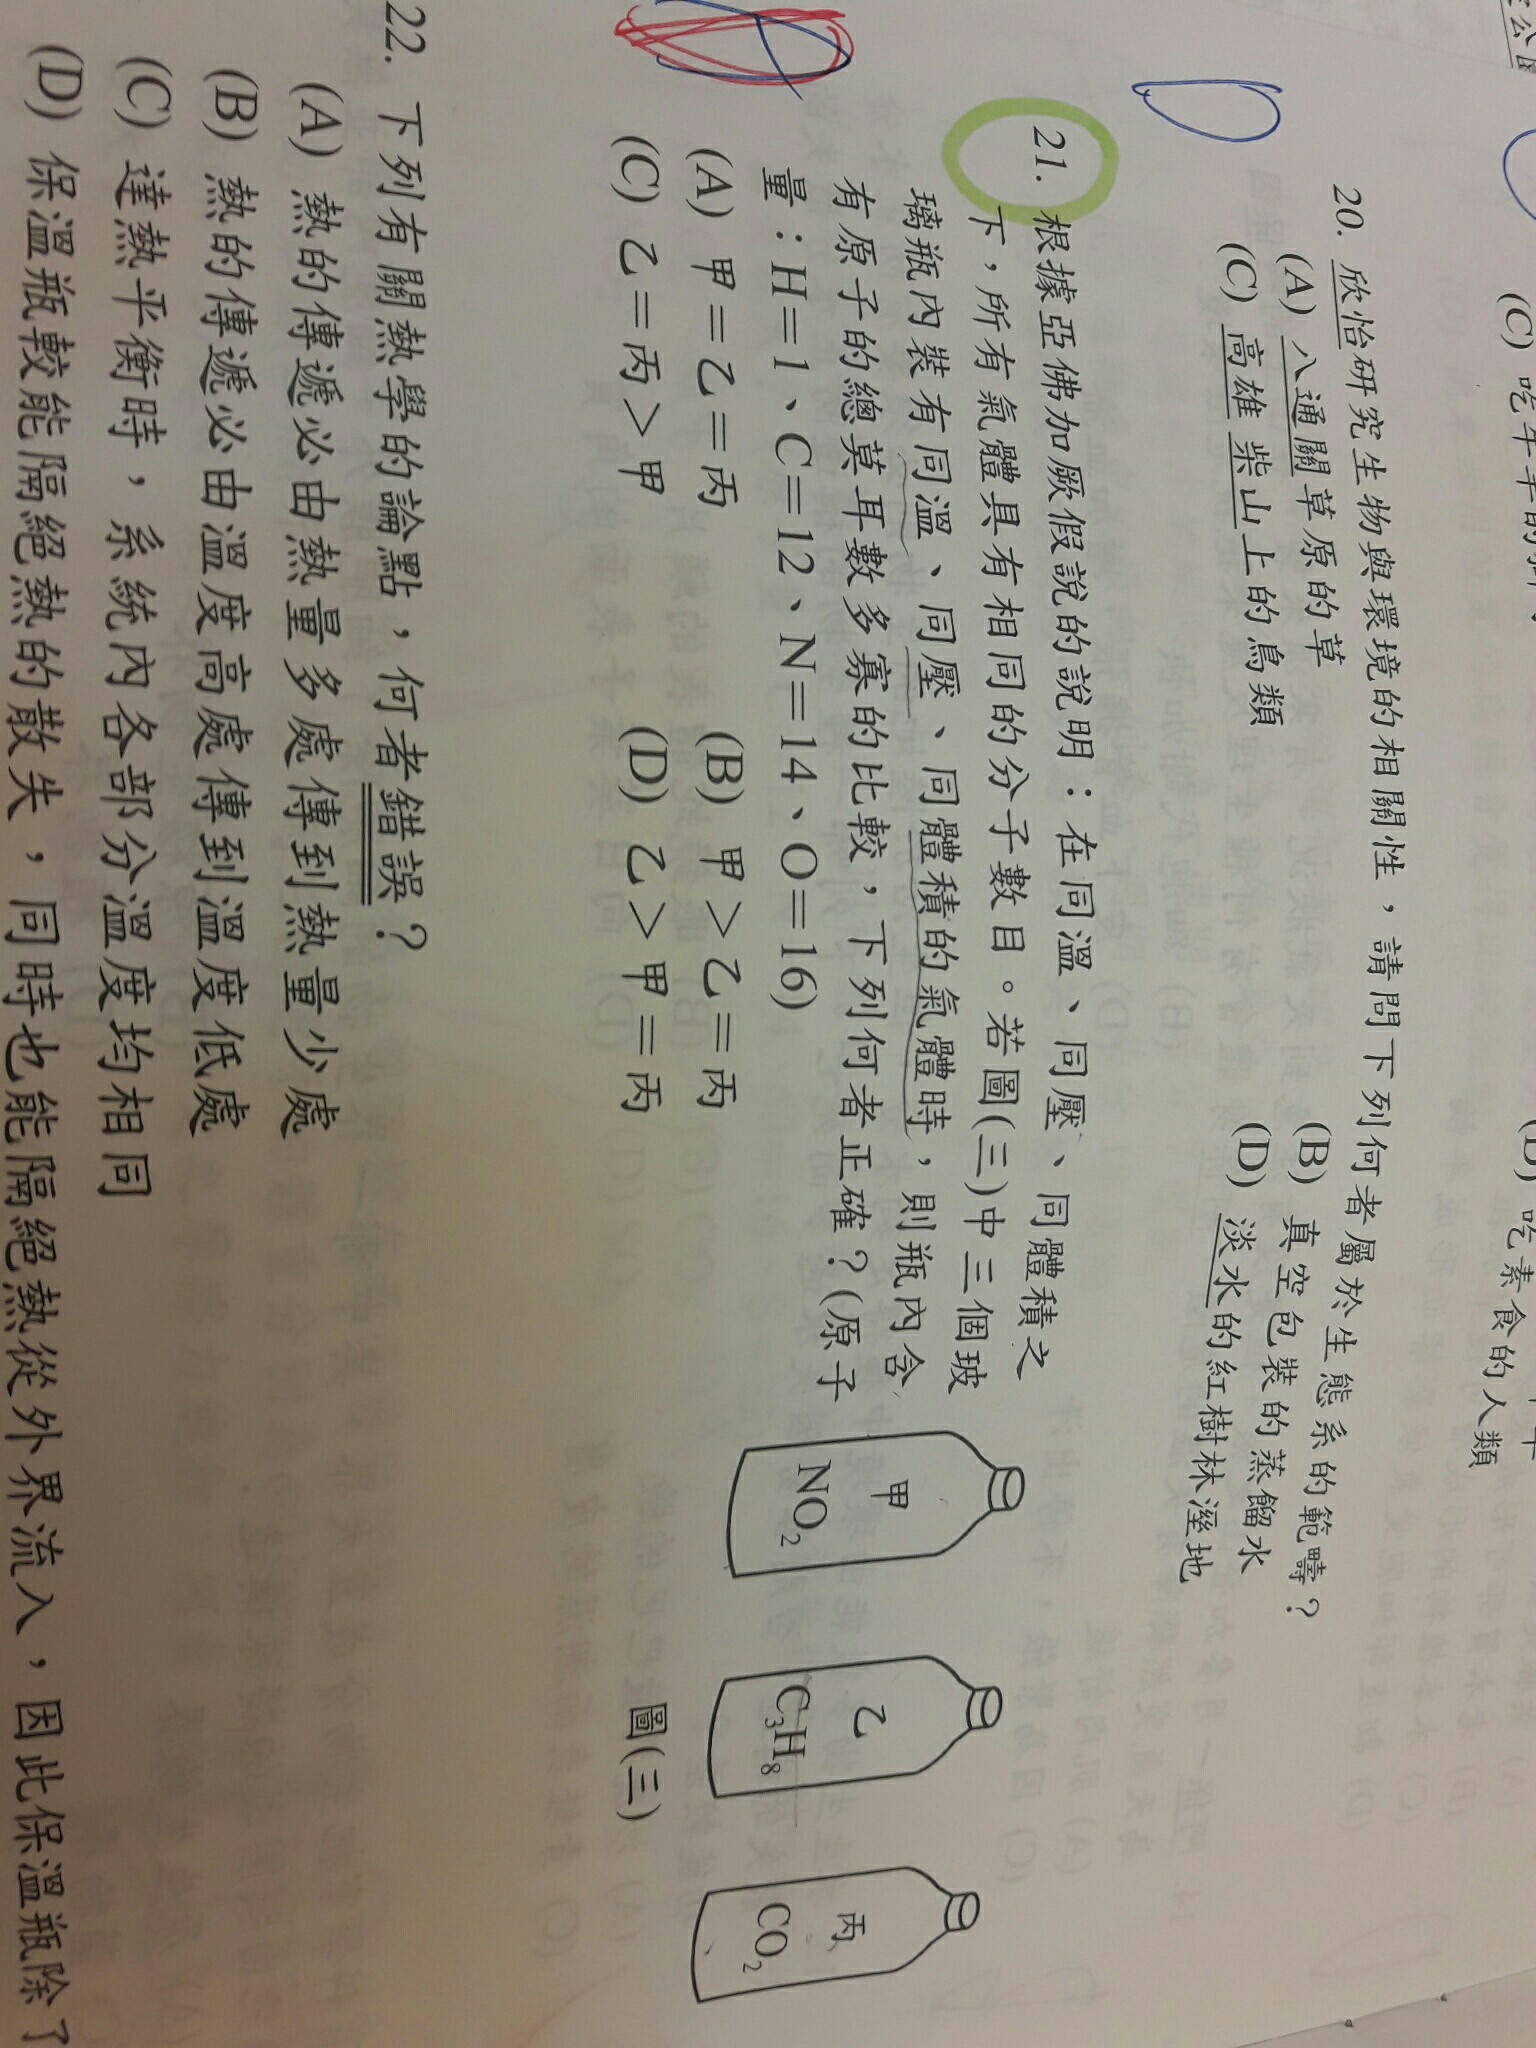 (C) 吃牛羊的
(D) 吃素食的人類
20. 欣怡研究生物與環境的相關性，請問下列何者屬於生態系的範疇？
(A) 八通關草原的草 (B) 真空包裝的蒸餾水
(C) 高雄柴山上的鳥類 (D) 淡水的紅樹林溼地
21. 根據亞佛加厥假說的說明：在同溫、同壓、同體積之
下，所有氣體具有相同的分子數目。若圖(三)中三個玻
璃瓶內裝有同溫、同壓、同體積的氣體時，則瓶內含
有原子的總莫耳數多寡的比較，下列何者正確？(原子
量：H＝1、C＝12、N＝14、O＝16)
(A) 甲＝乙＝丙 (B) 甲＞乙＝丙
(C) 乙＝丙＞甲 (D) 乙＞甲＝丙
甲
NO₂
乙
C₃H₈
丙
CO₂
圖(三)
22. 下列有關熱學的論點，何者錯誤？
(A) 熱的傳遞必由熱量多處傳到熱量少處
(B) 熱的傳遞必由溫度高處傳到溫度低處
(C) 達熱平衡時，系統內各部分溫度均相同
(D) 保溫瓶較能隔絕熱的散失，同時也能隔絕熱從外界流入，因此保溫瓶除了